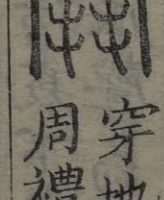 穿地
周禮